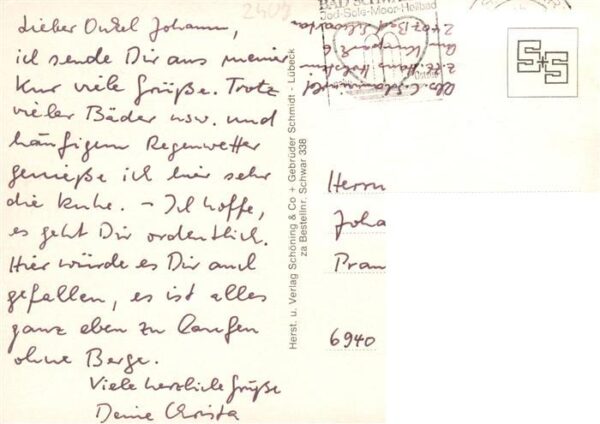 Lieber Onkel Johann,
ich sende Dir aus meiner
Kur viele Grüße. Trotz
vieler Bäder usw. und
häufigem Regenwetter
genieße ich hier sehr
die Ruhe. – Ich hoffe,
es geht Dir ordentlich.
Hier würde es Dir auch
gefallen, es ist alles
ganz eben zu laufen
ohne Berge.
Viele herzliche Grüße
Deine Christa
Herst. u. Verlag Schöning & Co + Gebrüder Schmidt - Lübeck
za Bestellnr. Schwar 338
2407
BAD SCHWAR
Jod-Sole-Moor-Heilbad
Ostsee
Abs.
z. Zt. Haus
2407 Bad
S+S
Herrn
Joha
Fran
6940